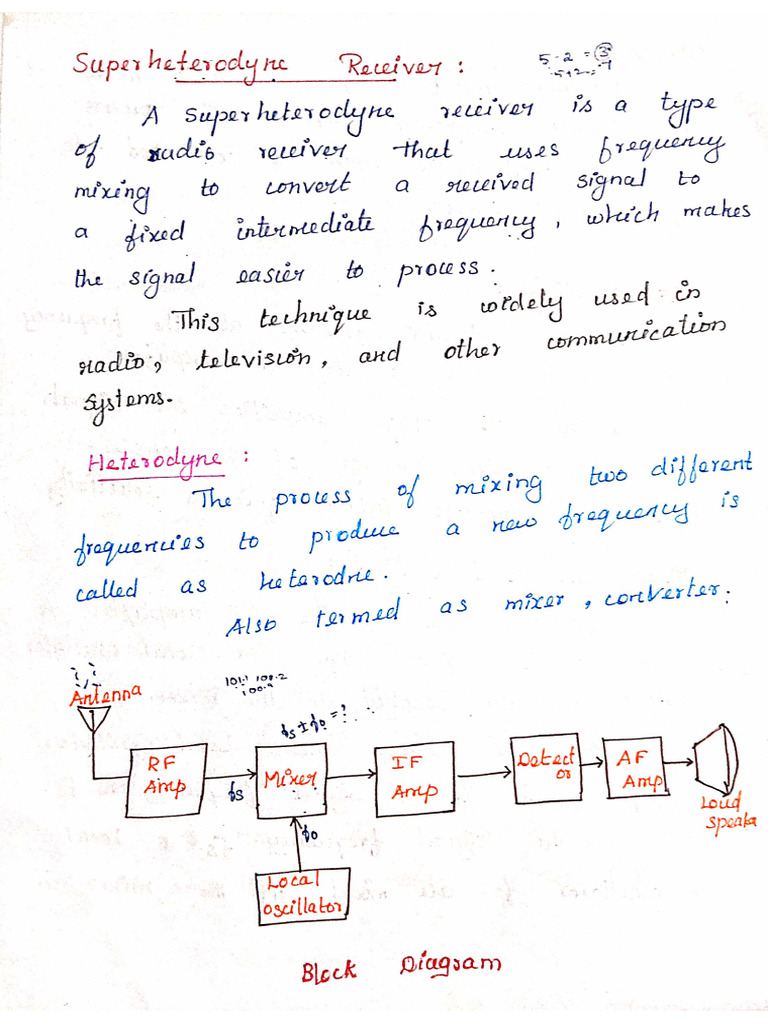 Superheterodyne Receiver :
5-2 = 3
5+2 = 7
A Superheterodyne receiver is a type
of radio receiver that uses frequency
mixing to convert a received signal to
a fixed intermediate frequency, which makes
the signal easier to process.
This technique is widely used in
radio, television, and other communication
systems.
Heterodyne :
The process of mixing two different
frequencies to produce a new frequency is
called as heterodne.
Also termed as mixer, converter.
Antenna
101.1 100.2
100.9
fs ± fo = ?
RF Amp
fs
Mixer
IF Amp
Detect or
AF Amp
Loud
speake
fo
Local
oscillator
Block Diagram